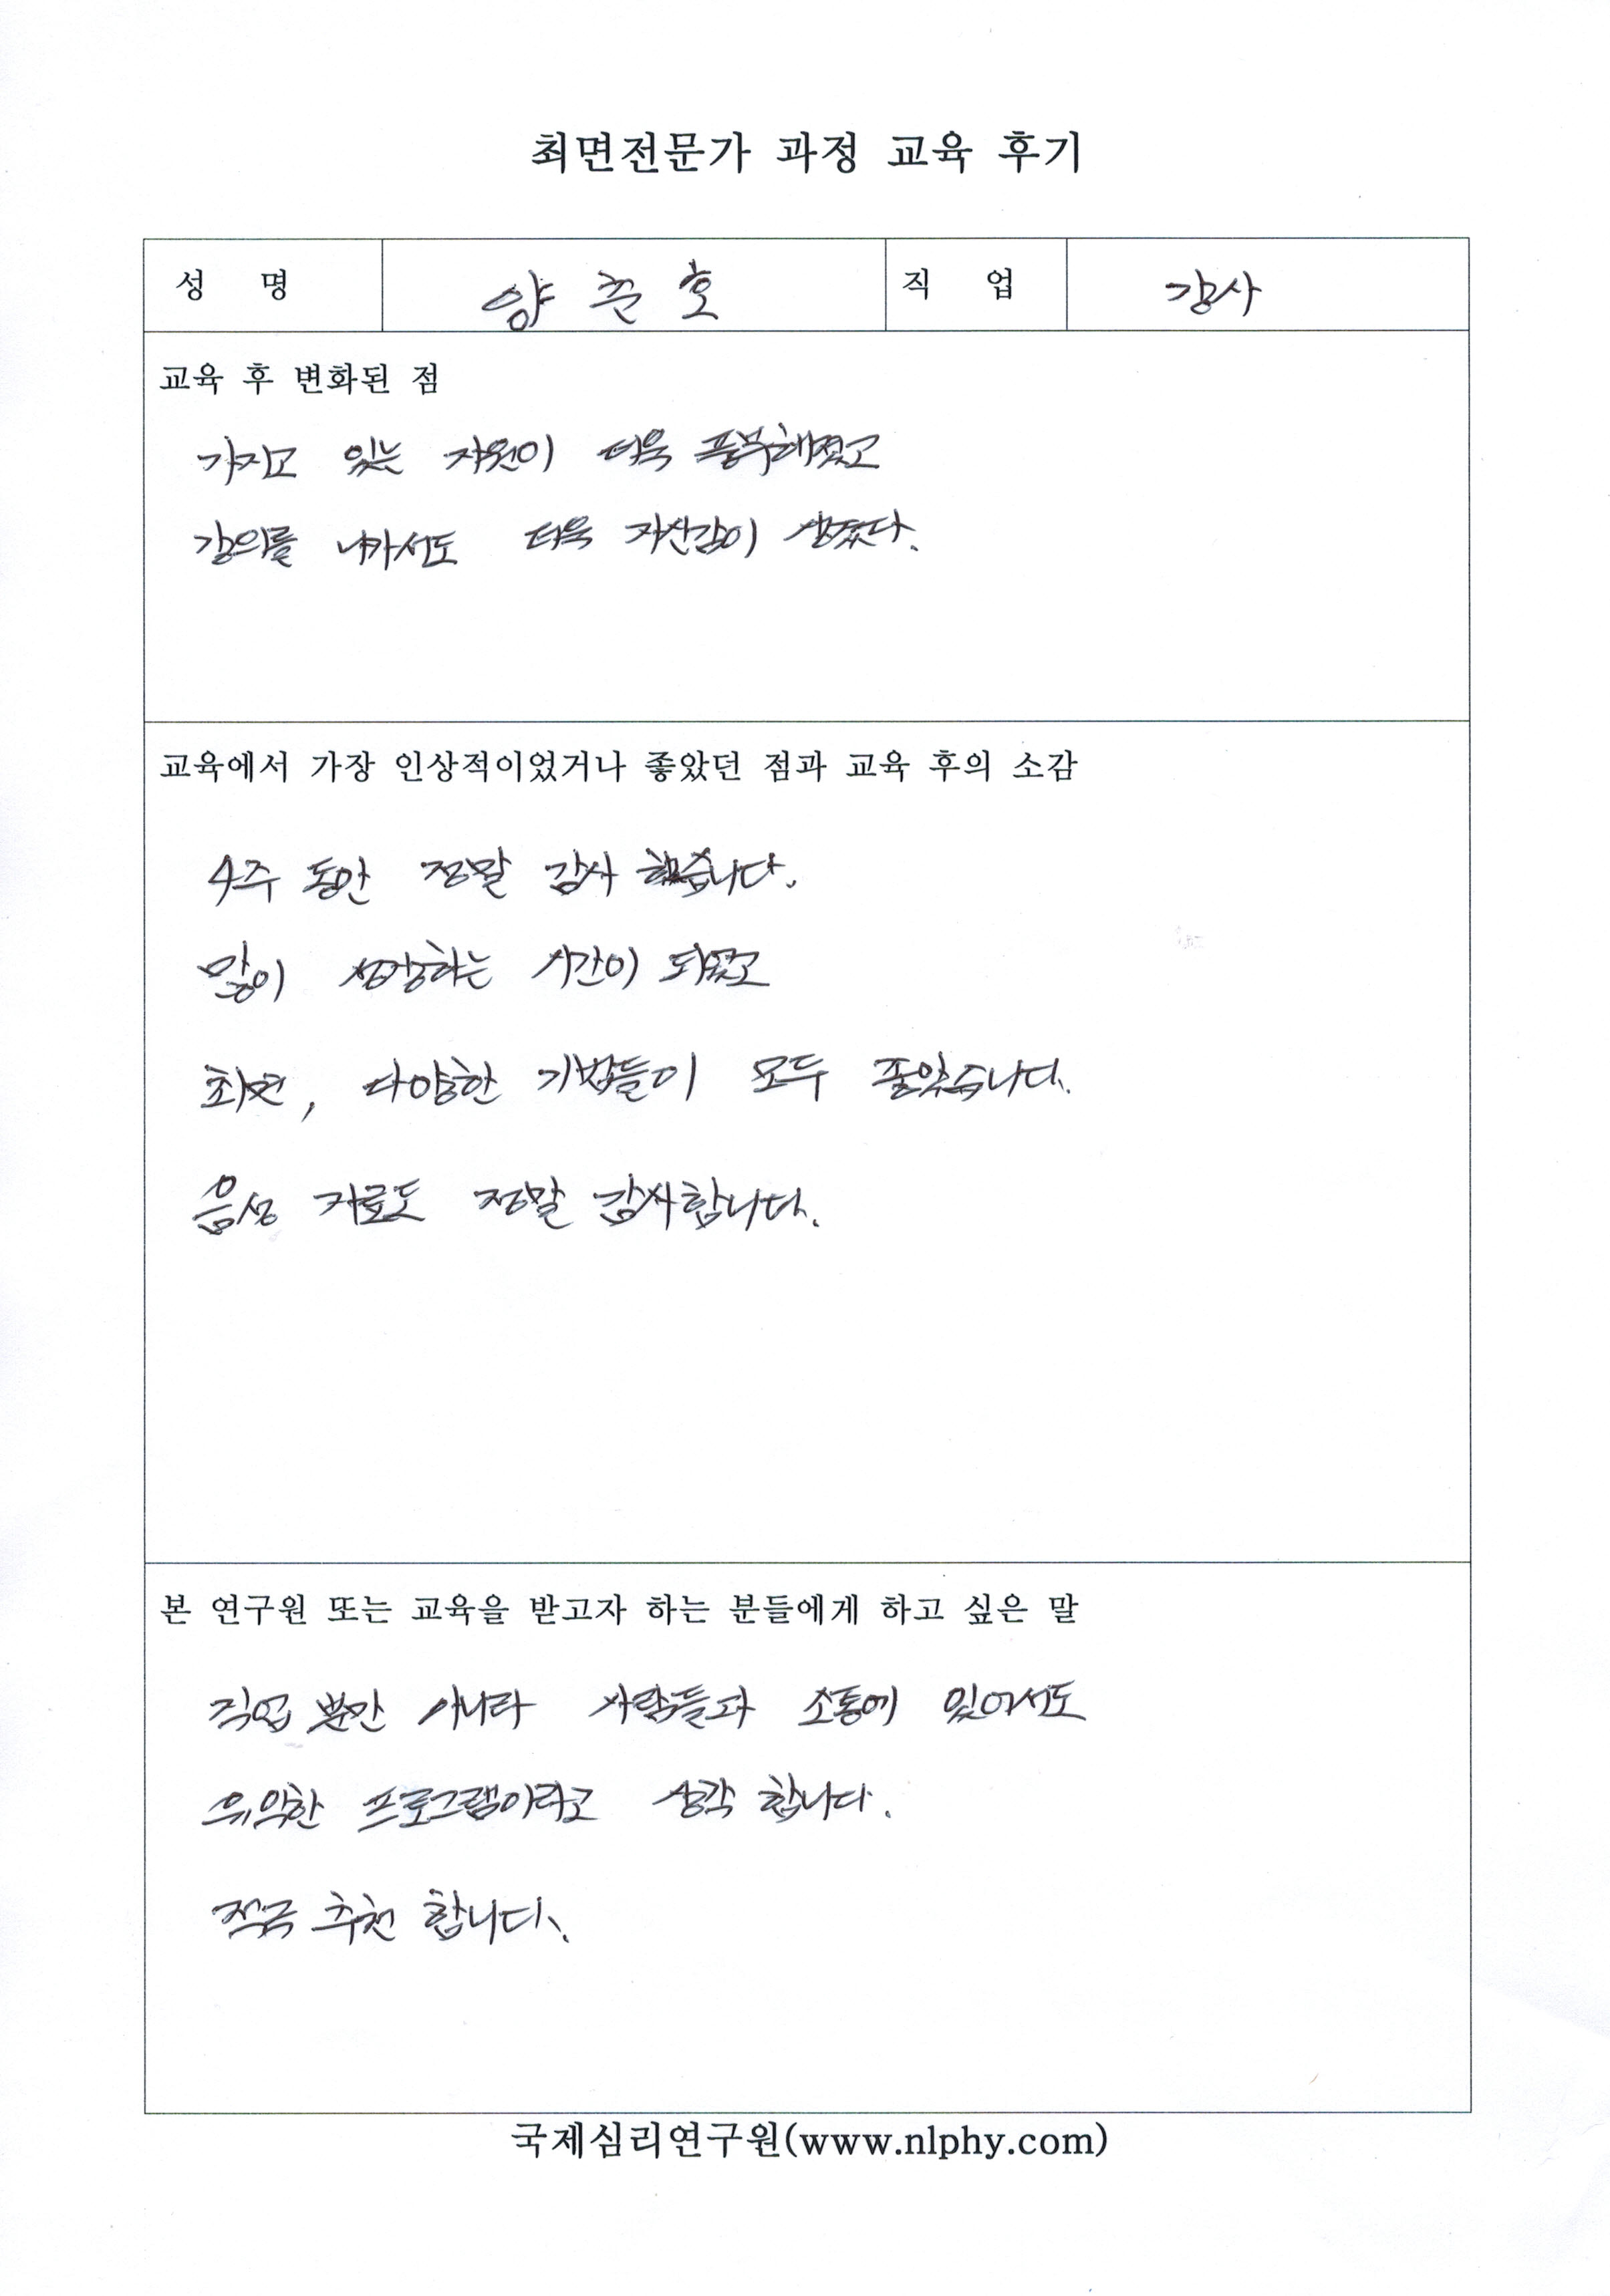 최면전문가 과정 교육 후기
성 명 양 준 호 직 업 강사
교육 후 변화된 점
가지고 있는 자원이 더욱 풍부해졌고
강의를 나가서도 더욱 자신감이 생겼다.
교육에서 가장 인상적이었거나 좋았던 점과 교육 후의 소감
4주 동안 정말 감사 했습니다.
많이 성장하는 시간이 되었고
최면, 다양한 기법들이 모두 좋았습니다.
음성 자료도 정말 감사합니다.
본 연구원 또는 교육을 받고자 하는 분들에게 하고 싶은 말
직업 뿐만 아니라 사람들과 소통에 있어서도
유익한 프로그램이라고 생각 합니다.
적극 추천 합니다.
국제심리연구원(www.nlphy.com)